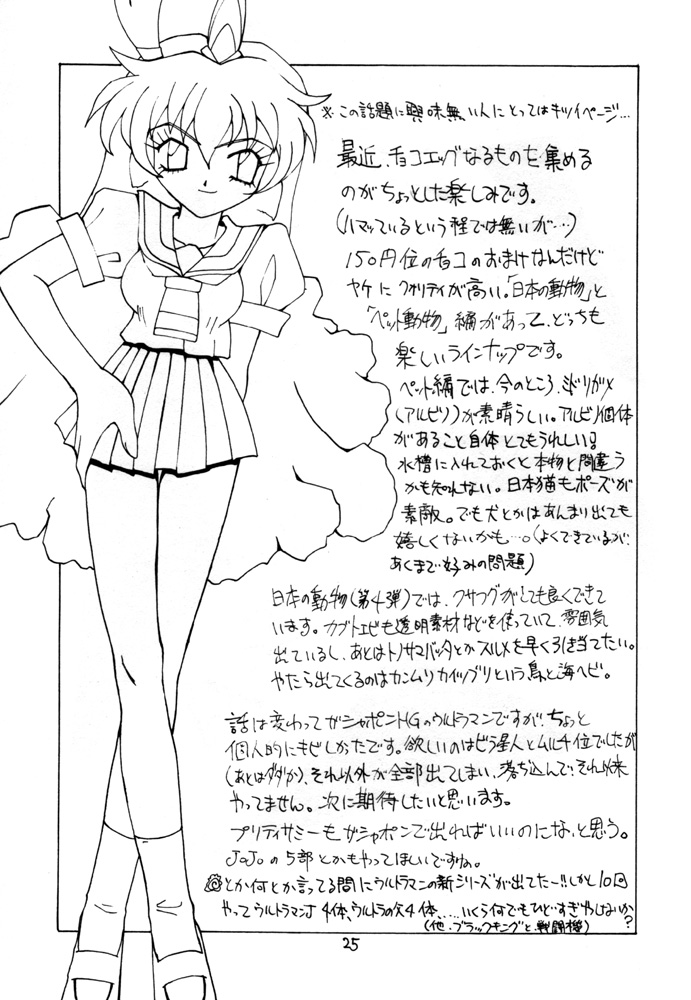 ※この話題に興味無い人にとってはキツイページ…
最近、チョコエッグなるものを集める
のがちょっとした楽しみです。
(ハマっているという程では無いが…)
150円位のチョコのおまけなんだけど
ヤケにクオリティが高い。「日本の動物」と
「ペット動物」編があって、どっちも
楽しいラインナップです。
ペット編では、今のところ、ミドリガメ
(アルビノ)が素晴らしい。アルビノ個体
があること自体とてもうれしい!
水槽に入れておくと本物と間違う
かも知れない。日本猫もポーズが
素敵。でも犬とかはあんまり出ても
嬉しくないかも…。(よくできているが、
あくまで好みの問題)
日本の動物(第4弾)では、クサフグがとても良くできて
います。カブトエビも透明素材などを使っていて、雰囲気
出ているし、あとはトノサマバッタとかスルメを早く引き当てたい。
やたら出てくるのはカンムリカイツブリという鳥と海ヘビ。
話は変わってガシャポンHGのウルトラマンですが、ちょっと
個人的にキビしかったです。欲しいのはビラ星人とムルチ位でしたが
(あとはダダか)、それ以外が全部出てしまい、落ち込んで、それ以来
やってません。次に期待したいと思います。
プリティサミーもガシャポンで出ればいいのにな、と思う。
JoJoの5部とかもやってほしいですね。
とか何とか言ってる間にウルトラマンの新シリーズが出てたー!!しかし10回
やってウルトラマンが4体、ウルトラの父4体、....いくら何でもひどすぎやしないか?
(他、ブラックキングと、戦闘機)
25